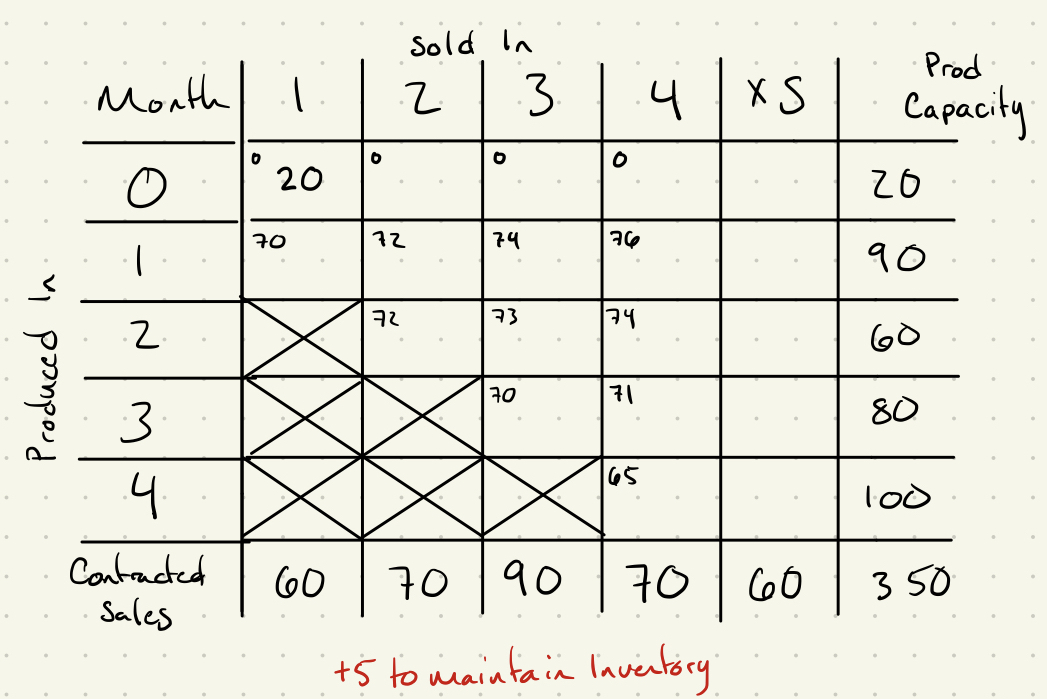 Sold In
Month 1 2 3 4 XS Prod Capacity
Produced In
0 0 20 0 0 0 20
1 70 72 74 76 90
2 72 73 74 60
3 70 71 80
4 65 100
Contracted Sales 60 70 90 70 60 350
+5 to maintain Inventory